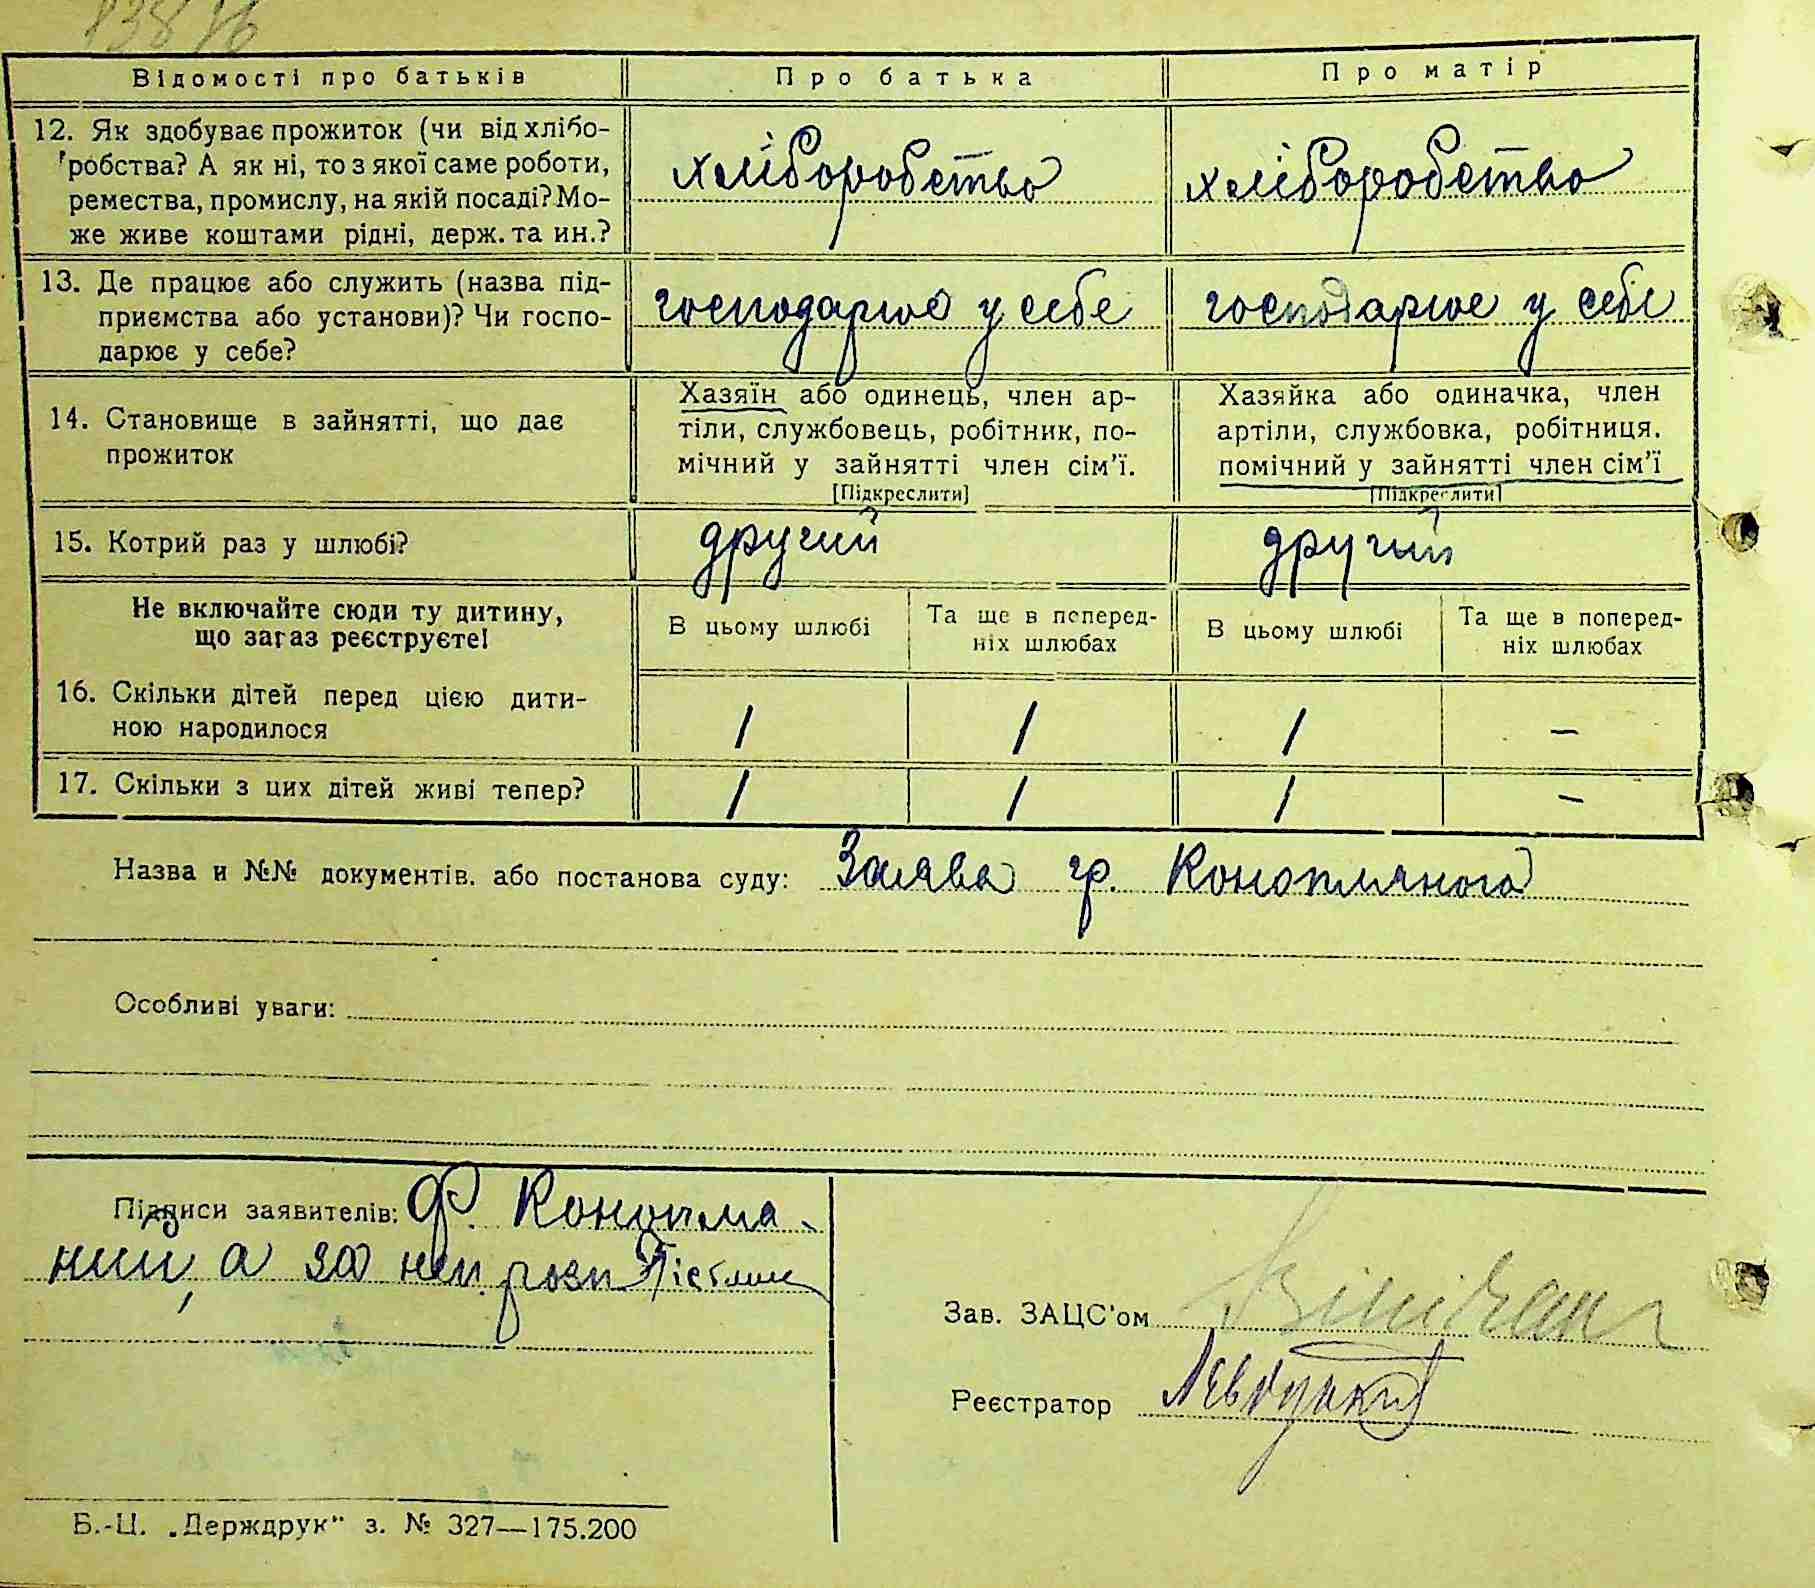 13876
Відомості про батьків Про батька Про матір
12. Як здобуває прожиток (чи від хлібо-
робства? А як ні, то з якої саме роботи,
ремества, промислу, на якій посаді? Мо-
же живе коштами рідні, держ. та ин.?
хліборобство хліборобство
13. Де працює або служить (назва під-
приємства або установи)? Чи госпо-
дарює у себе?
господарює у себе господарює у себе
14. Становище в зайнятті, що дає
прожиток
Хазяїн або одинець, член ар-
тіли, службовець, робітник, по-
мічний у зайнятті член сім'ї.
[Підкреслити]
Хазяйка або одиначка, член
артіли, службовка, робітниця.
помічний у зайнятті член сім'ї
[Підкреслити]
15. Котрий раз у шлюбі? другий другий
Не включайте сюди ту дитину,
що зараз реєструєте!
В цьому шлюбі
Та ще в поперед-
ніх шлюбах
В цьому шлюбі
Та ще в поперед-
ніх шлюбах
16. Скільки дітей перед цією дити-
ною народилося
1 1 1 –
17. Скільки з цих дітей живі тепер? 1 1 1 –
Назва и №№ документів. або постанова суду: Заява гр. Конопляного
Особливі уваги:
Підписи заявителів: Ф. Конопля-
ний, а за неп. розп.
Зав. ЗАЦС'ом
Реєстратор
Б.-Ц. „Держдрук" з. № 327—175.200